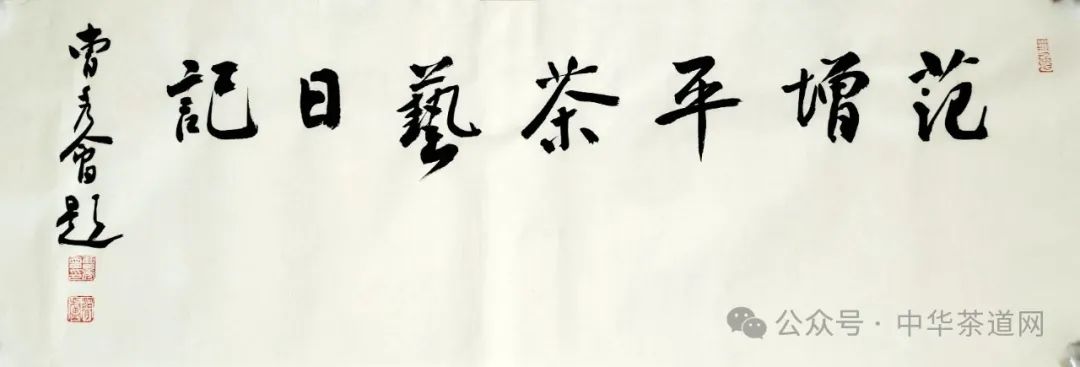 范增平茶藝日記
曹秀會題
公众号·中华茶道网